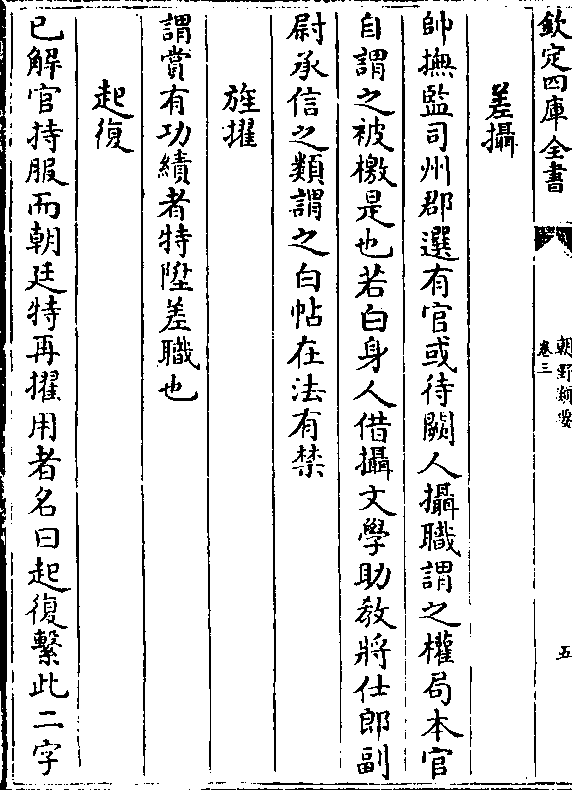 欽定四庫全書
朝野類要
卷三
五
差攝
帥撫監司州郡選有官或待闕人攝職謂之權局本官
自謂之被檄是也若白身人借攝文學助教將仕郎副
尉承信之類謂之白帖在法有禁
旌擢
謂賞有功績者特陞差職也
起復
已解官持服而朝廷特再擢用者名曰起復繫此二字